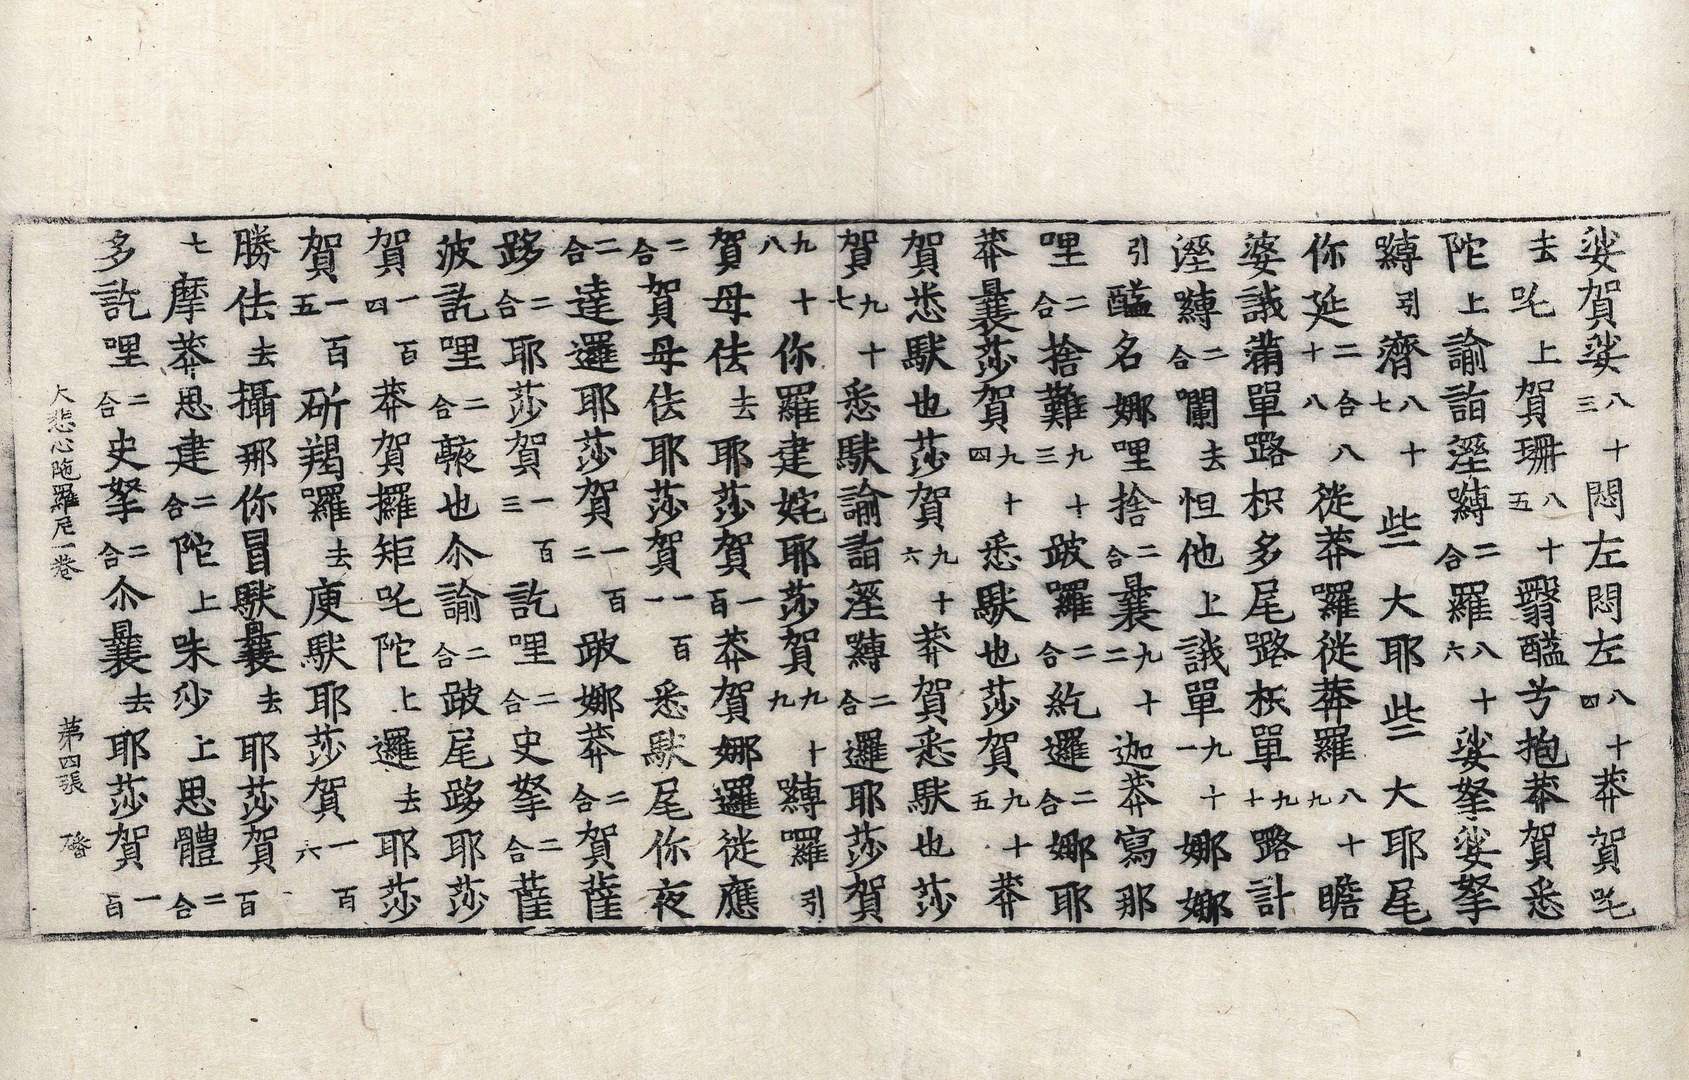 娑賀娑八十三悶左悶左八十四莽賀吒
去吒上賀珊八十五翳醯兮抱莽賀悉
陀上諭詣溼嚩二合羅八十六娑拏娑拏
嚩引濟八十七些大耶些大耶尾
你延二合十八八徙莽囉徙莽羅八十九瞻
婆誐滿單路枳多尾路枳單九十路計
溼嚩二合囒去怛他上誐單九十一娜娜
引醯名娜哩捨二合曩九十二迦莽寫那
哩二合捨難九十三跛羅二合紇邏二合娜耶
莽曩莎賀九十四悉馱也莎賀九十五莽
賀悉馱也莎賀九十六莽賀悉馱也莎
賀九十七悉馱諭詣溼嚩二合邏耶莎賀
九十八你羅建姹耶莎賀九十九嚩囉引
賀母佉去耶莎賀一百莽賀娜邏徙應
二合賀母佉耶莎賀一百一悉馱尾你夜
二合達邏耶莎賀一百二跛娜莽二合賀薩
跢二合耶莎賀一百三訖哩二合史拏二合薩
波訖哩二合裓也尒諭二合跛尾跢耶莎
賀一百四莽賀攞矩吒陀上邏去耶莎
賀一百五斫羯囉去庾馱耶莎賀一百六
勝佉去攝那你冒馱曩去耶莎賀一百
七摩莽思建二合陀上昧沙上思體二合
多訖哩二合史拏二合尒曩去耶莎賀一百
大悲心陁羅尼一卷 第四張